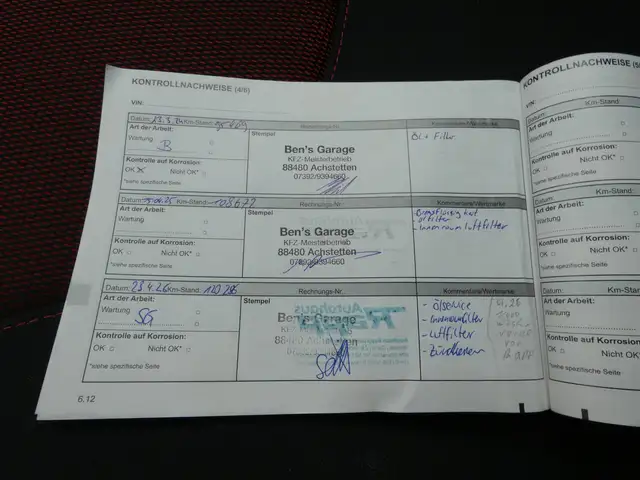 KONTROLLNACHWEISE (4/6)
VIN:
Datum: Km-Stand:
Rechnungs-Nr.:
Kommentare/Wertmarke
Art der Arbeit:
Wartung
B
Kontrolle auf Korrosion:
OK Nicht OK*
*siehe spezifische Seite
Stempel
Ben's Garage
KFZ-Meisterbetrieb
88480 Achstetten
07392/9394660
Öl + Filter
Datum: Km-Stand: 108677
Rechnungs-Nr.:
Kommentare/Wertmarke
Art der Arbeit:
Wartung
Kontrolle auf Korrosion:
OK Nicht OK*
*siehe spezifische Seite
Stempel
Ben's Garage
KFZ-Meisterbetrieb
88480 Achstetten
07392/9394660
Bremsflüssigkeit
Ölfilter
- Innenraumluftfilter
Datum: 23.4.26 Km-Stand: 120 286
Rechnungs-Nr.:
Kommentare/Wertmarke
Art der Arbeit:
Wartung
SG
Kontrolle auf Korrosion:
OK Nicht OK*
*siehe spezifische Seite
Stempel
Ben's Garage
KFZ-Meisterbetrieb
88480 Achstetten
Autohaus
- Ölservice
- Innenraumfilter
- Luftfilter
- Zündkerzen
6.12
KONTROLLNACHWEISE (5/
VIN:
Datum: Km-Stand:
Art der Arbeit:
Wartung
Kontrolle auf Korrosion:
OK Nicht OK*
*siehe spezifische Seite
Datum: Km-Stand:
Art der Arbeit:
Wartung
Kontrolle auf Korrosion:
OK Nicht OK*
*siehe spezifische Seite
Datum: Km-Stand
Art der Arbeit:
Wartung
Kontrolle auf Korrosion:
OK Nicht OK*
*siehe spezifische Seite